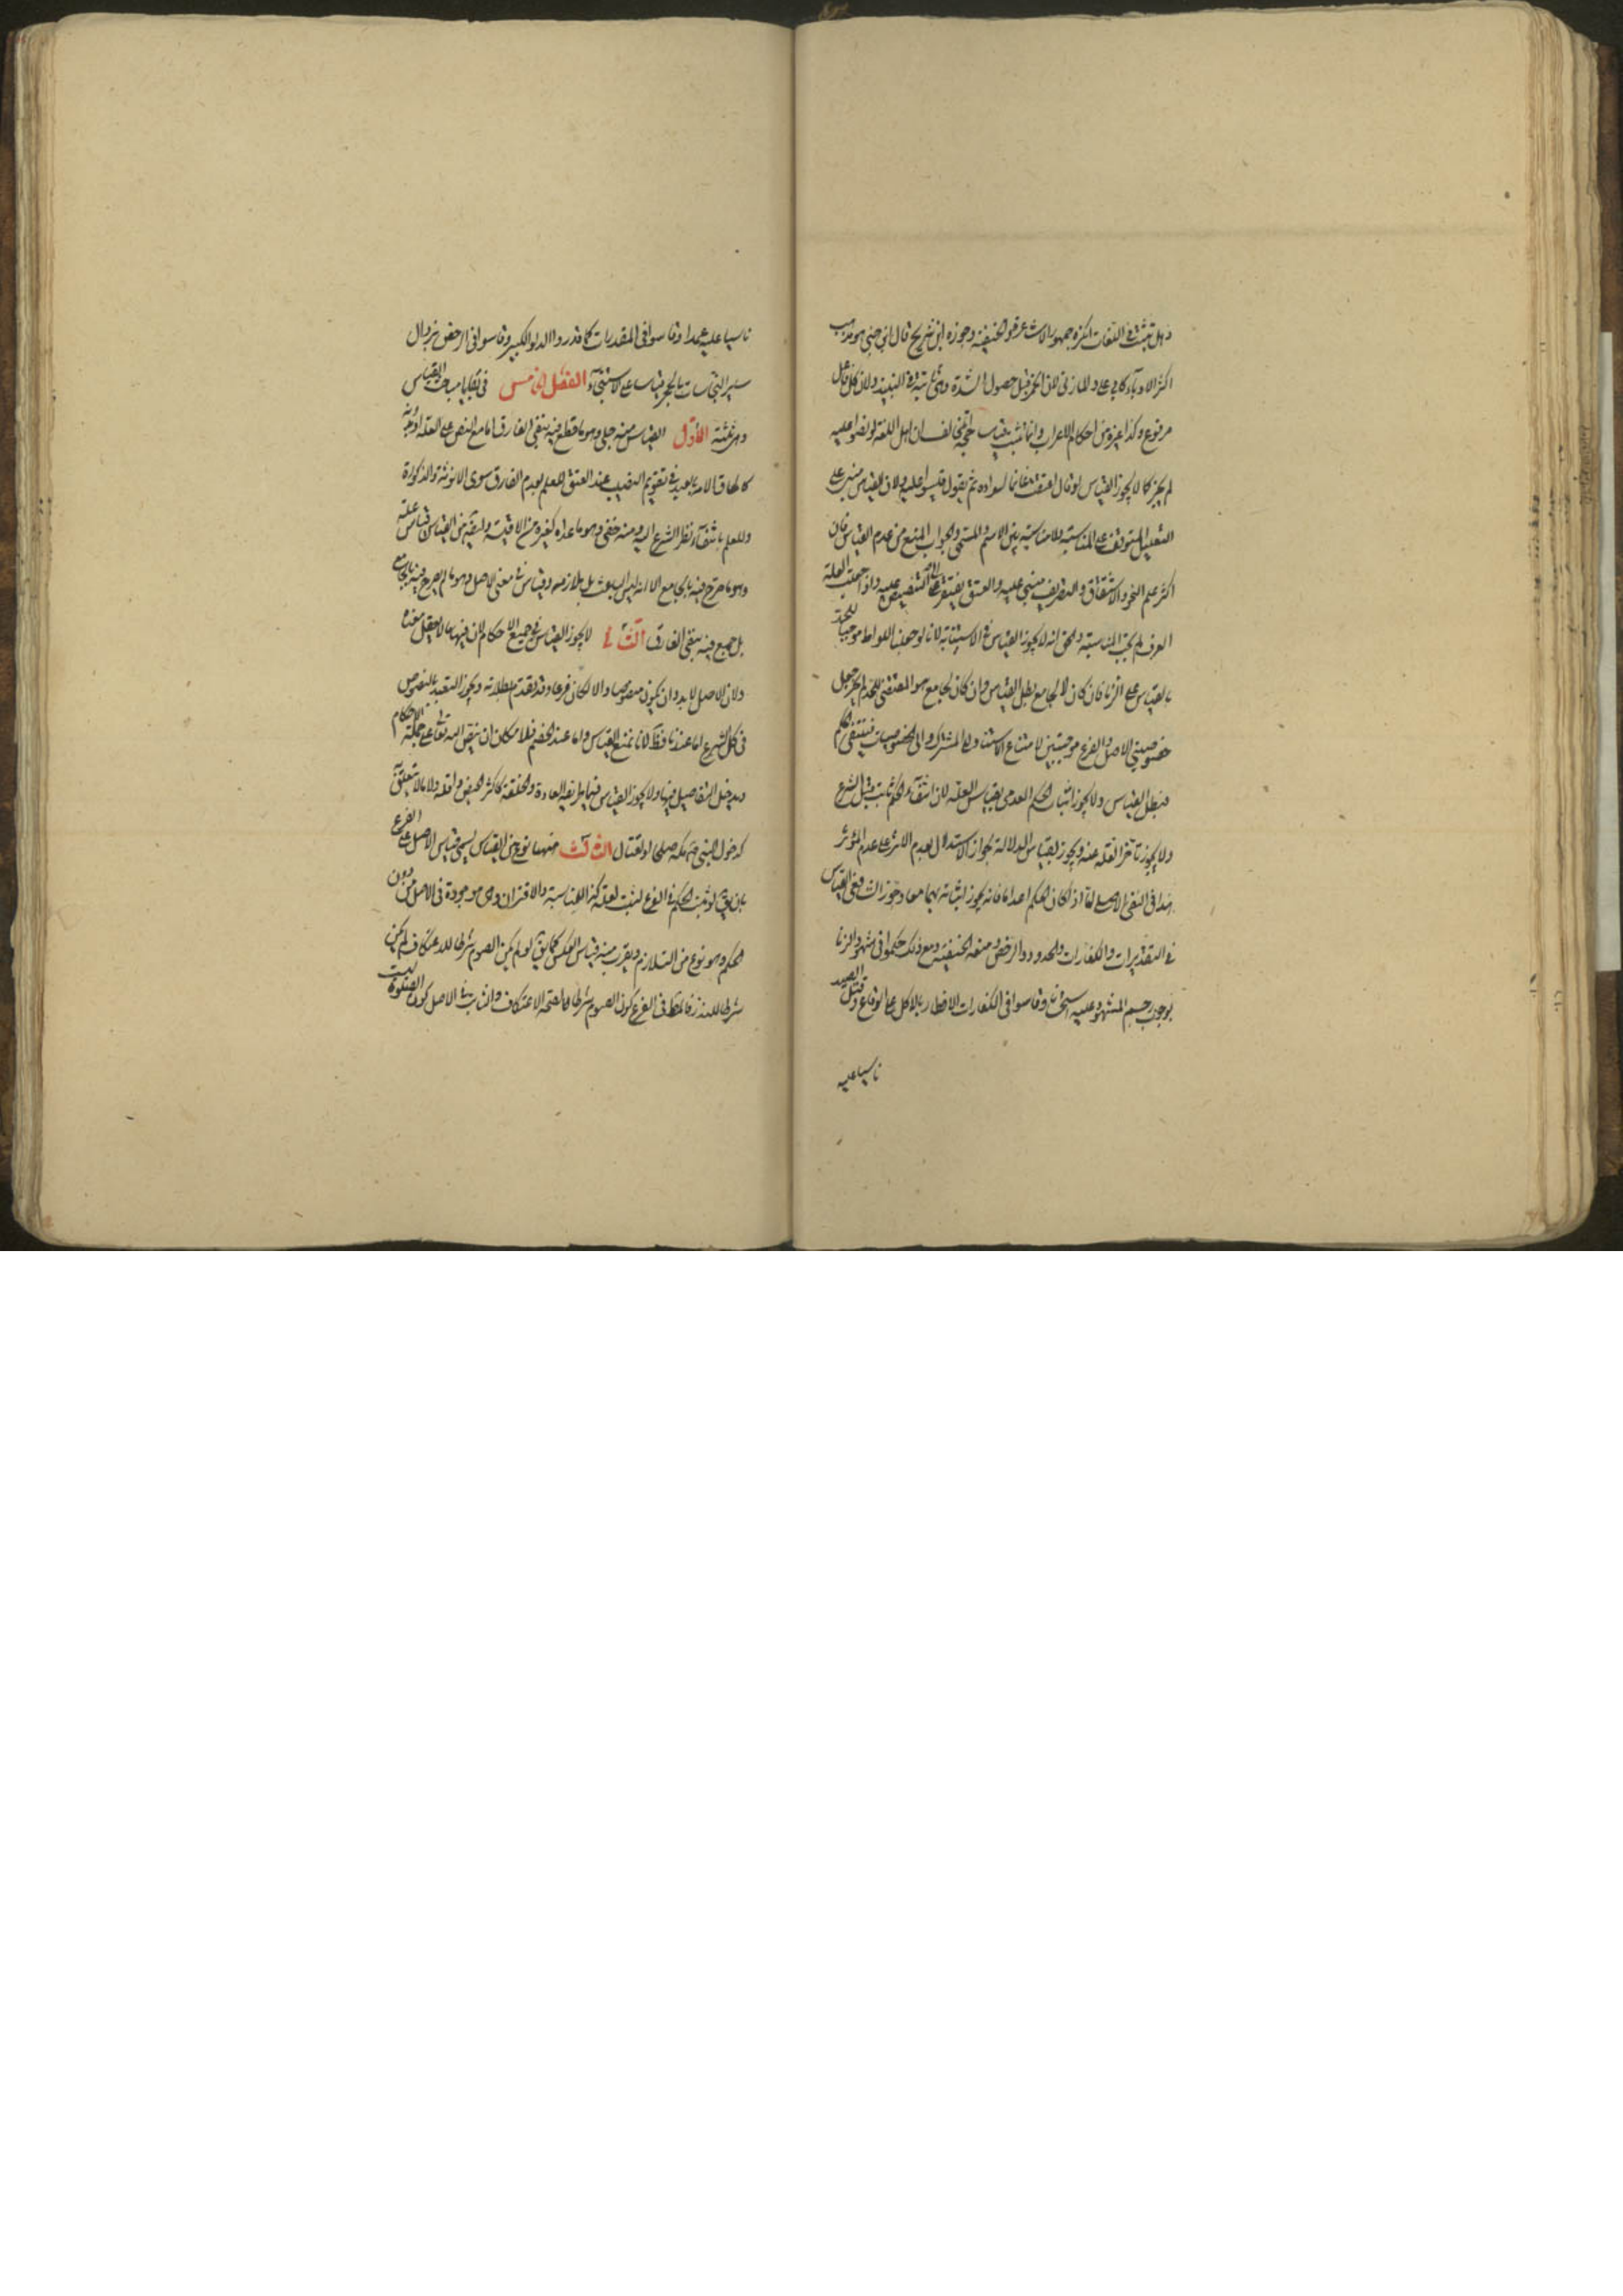 وهل تثبت في اللغات انكره جمهور الاشاعرة والحنفية وجوزه ابن شريح قال ابن جني هو مذهب
اكثر الادباء كابي علي والمازني لان الخمر قبل حصول الشدة وهي ثابتة في النبيذ ولان كل فاعل
مرفوع وكذا غيره من احكام الاعراب وانما تثبت بقياس احتج المخالف ان اهل اللغة لو نصوا عليه
لم يجز كما لا يجوز القياس لو قال اعتقت غانما لسواده ثم يقول قيسوا عليه ولان القياس مبني على
التعليل المتوقف على المناسبة ولا مناسبة بين الاسم والمسمى والجواب المنع من عدم القياس فان
اكثر علم النحو والاشتقاق والتصريف مبني عليه والعتق يفتقر الى التنصيص عليه واذا جعلت العلة
المعرف لم يجب المناسبة والحق انه لا يجوز القياس في الاسباب لانا لو جعلنا اللواط موجبا للحد
بالقياس على الزنا فان كان لا لجامع بطل القياس وان كان لجامع هو المقتضي للحد لم يجز جعل
خصوصيتي الاصل والفرع موجبتين لامتناع الاستناد الى المشترك والى الخصوصيات فينتفي الحكم
فبطل القياس ولا يجوز اثبات الحكم العدمي بقياس العلة لان انتفاء الحكم ثابت قبل الشرع
ولا يجوز تأخر العلة عنه ويجوز بقياس الدلالة لجواز الاستدلال بعدم الاثر على عدم المؤثر
هذا في النفي الاصلي اما اذا كان الحكم اعداما فانه يجوز اثباته بهما معا وجوز الشافعي القياس
في التقديرات والكفارات والحدود والرخص ومنعه الحنفية ومع ذلك حكموا في شهود الزنا
بوجوب رجم المشهود عليه استحسانا وقاسوا في الكفارات الافطار بالاكل على الوقاع وقتل الصيد
ناسيا عليه
ناسيا عليه عمدا وقاسوا في المقدرات كما قدروا الدلو الكبير وقاسوا في الرخص بزوال
ساير النجاسات بالحجر قياسا على الاستنجاء الفصل الخامس في بقايا مباحث القياس
وهي ثلثة الاول القياس منه جلي وهو ما قطع فيه بنفي الفارق اما مع النص على العلة او بدونه
كالحاق الامة بالعبد في تقويم النصيب عند العتق للعلم بعدم الفارق سوى الانوثة والذكورة
وللعلم بانتفاء نظر الشرع اليه ومنه خفي وهو ما عداه كغيره من الاقيسة وايضا من القياس قياس علة
وهو ما صرح فيه بالجامع الا انه ليس الباعث بل يلازمه وقياس في معنى الاصل وهو ما لم يصرح فيه بالجامع
بل جمع فيه بنفي الفارق الثاني لا يجوز القياس في جميع الاحكام لان فيها ما لا يعقل معناه
ولان الاصل لا بد وان يكون منصوصا والا لكان فرعا وقد تقدم بطلانه ويجوز التعبد بالنصوص
في كل الشرع اما عندنا فظ لانا نمنع القياس واما عند الخصم فلامكان ان ينص الله تعالى على جملة الاحكام
ويدخل التفاصيل فيها ولا يجوز القياس فيما طريقه العادة والخلقة كاكثر الحيض واقله ولا ما لا يتعلق به
كدخول النبي مكة صلحا او بقتال الثالث منهما نوع من القياس يسمى قياس الاصل على الفرع
بان يق لو ثبت الحكم في الفرع لثبت لعلة كذا للمناسبة والاقتران وهي موجودة في الاصل من دون
الحكم وهو نوع من التلازم ويقرب منه قياس العكس كما يق لو لم يكن الصوم شرطا للاعتكاف لم يكن
شرطا بالنذر فالمط في الفرع كون الصوم شرطا لصحة الاعتكاف والثابت في الاصل كون الصلوة ليست